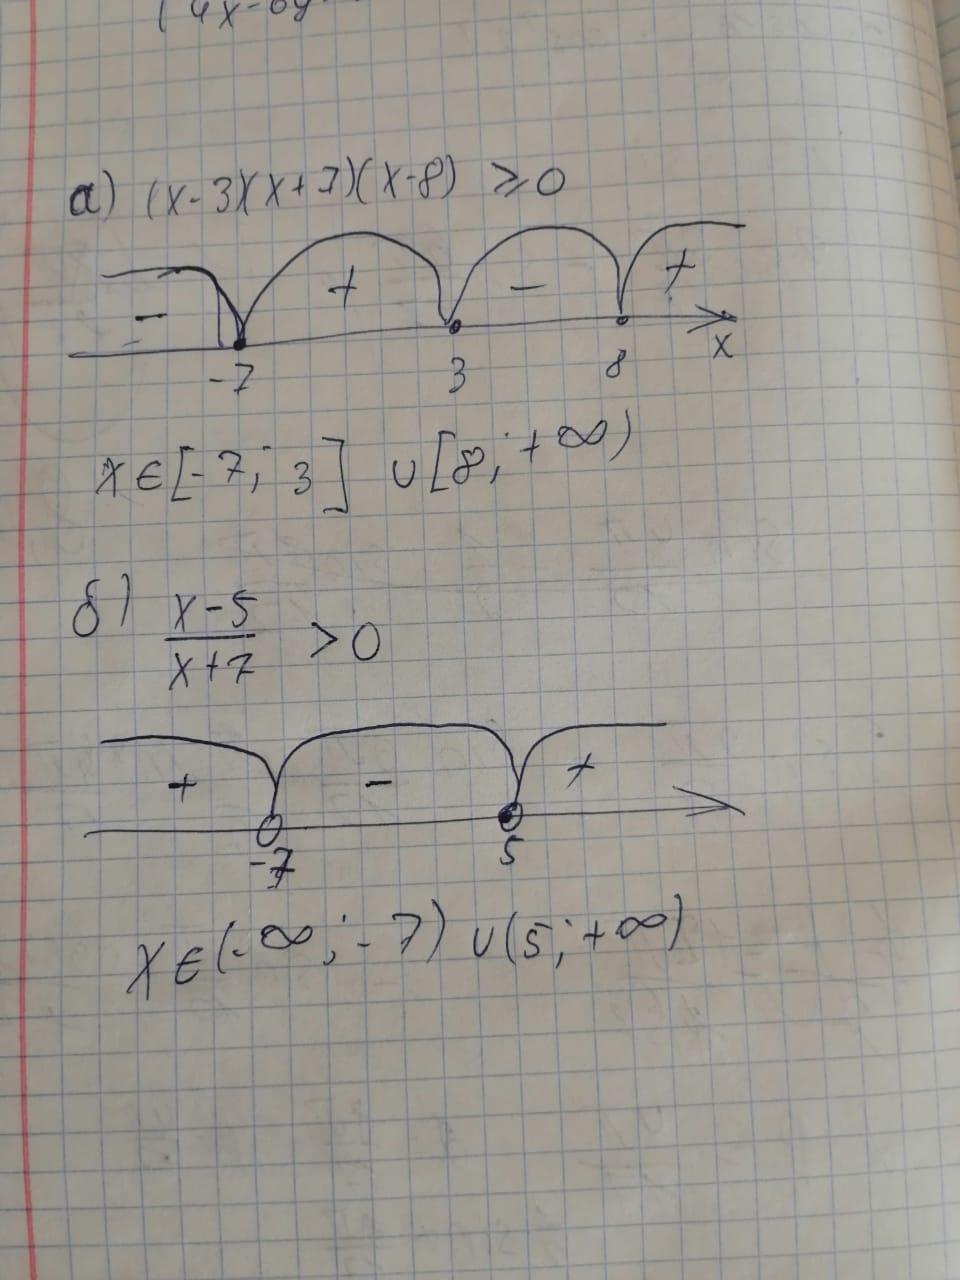 (4x-6y
а) (x-3)(x+7)(x-8) ≥0
- + - +
-7 3 8 x
x∈[-7; 3] ∪[8;+∞)
б) x-5
x+7 >0
+ - +
-7 5
x∈(-∞;-7) ∪(5;+∞)